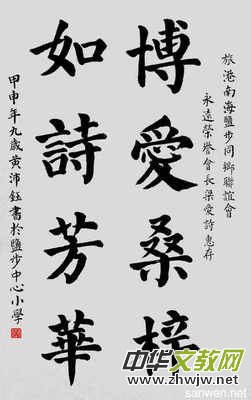 旅港南海鹽步同鄉聯誼會
永遠榮譽會長梁愛詩惠存
博愛桑梓
如詩芳華
甲申年九歲黃沛鈺書於鹽步中心小學
中华文教网
www.zhwjw.net
sanwen.net